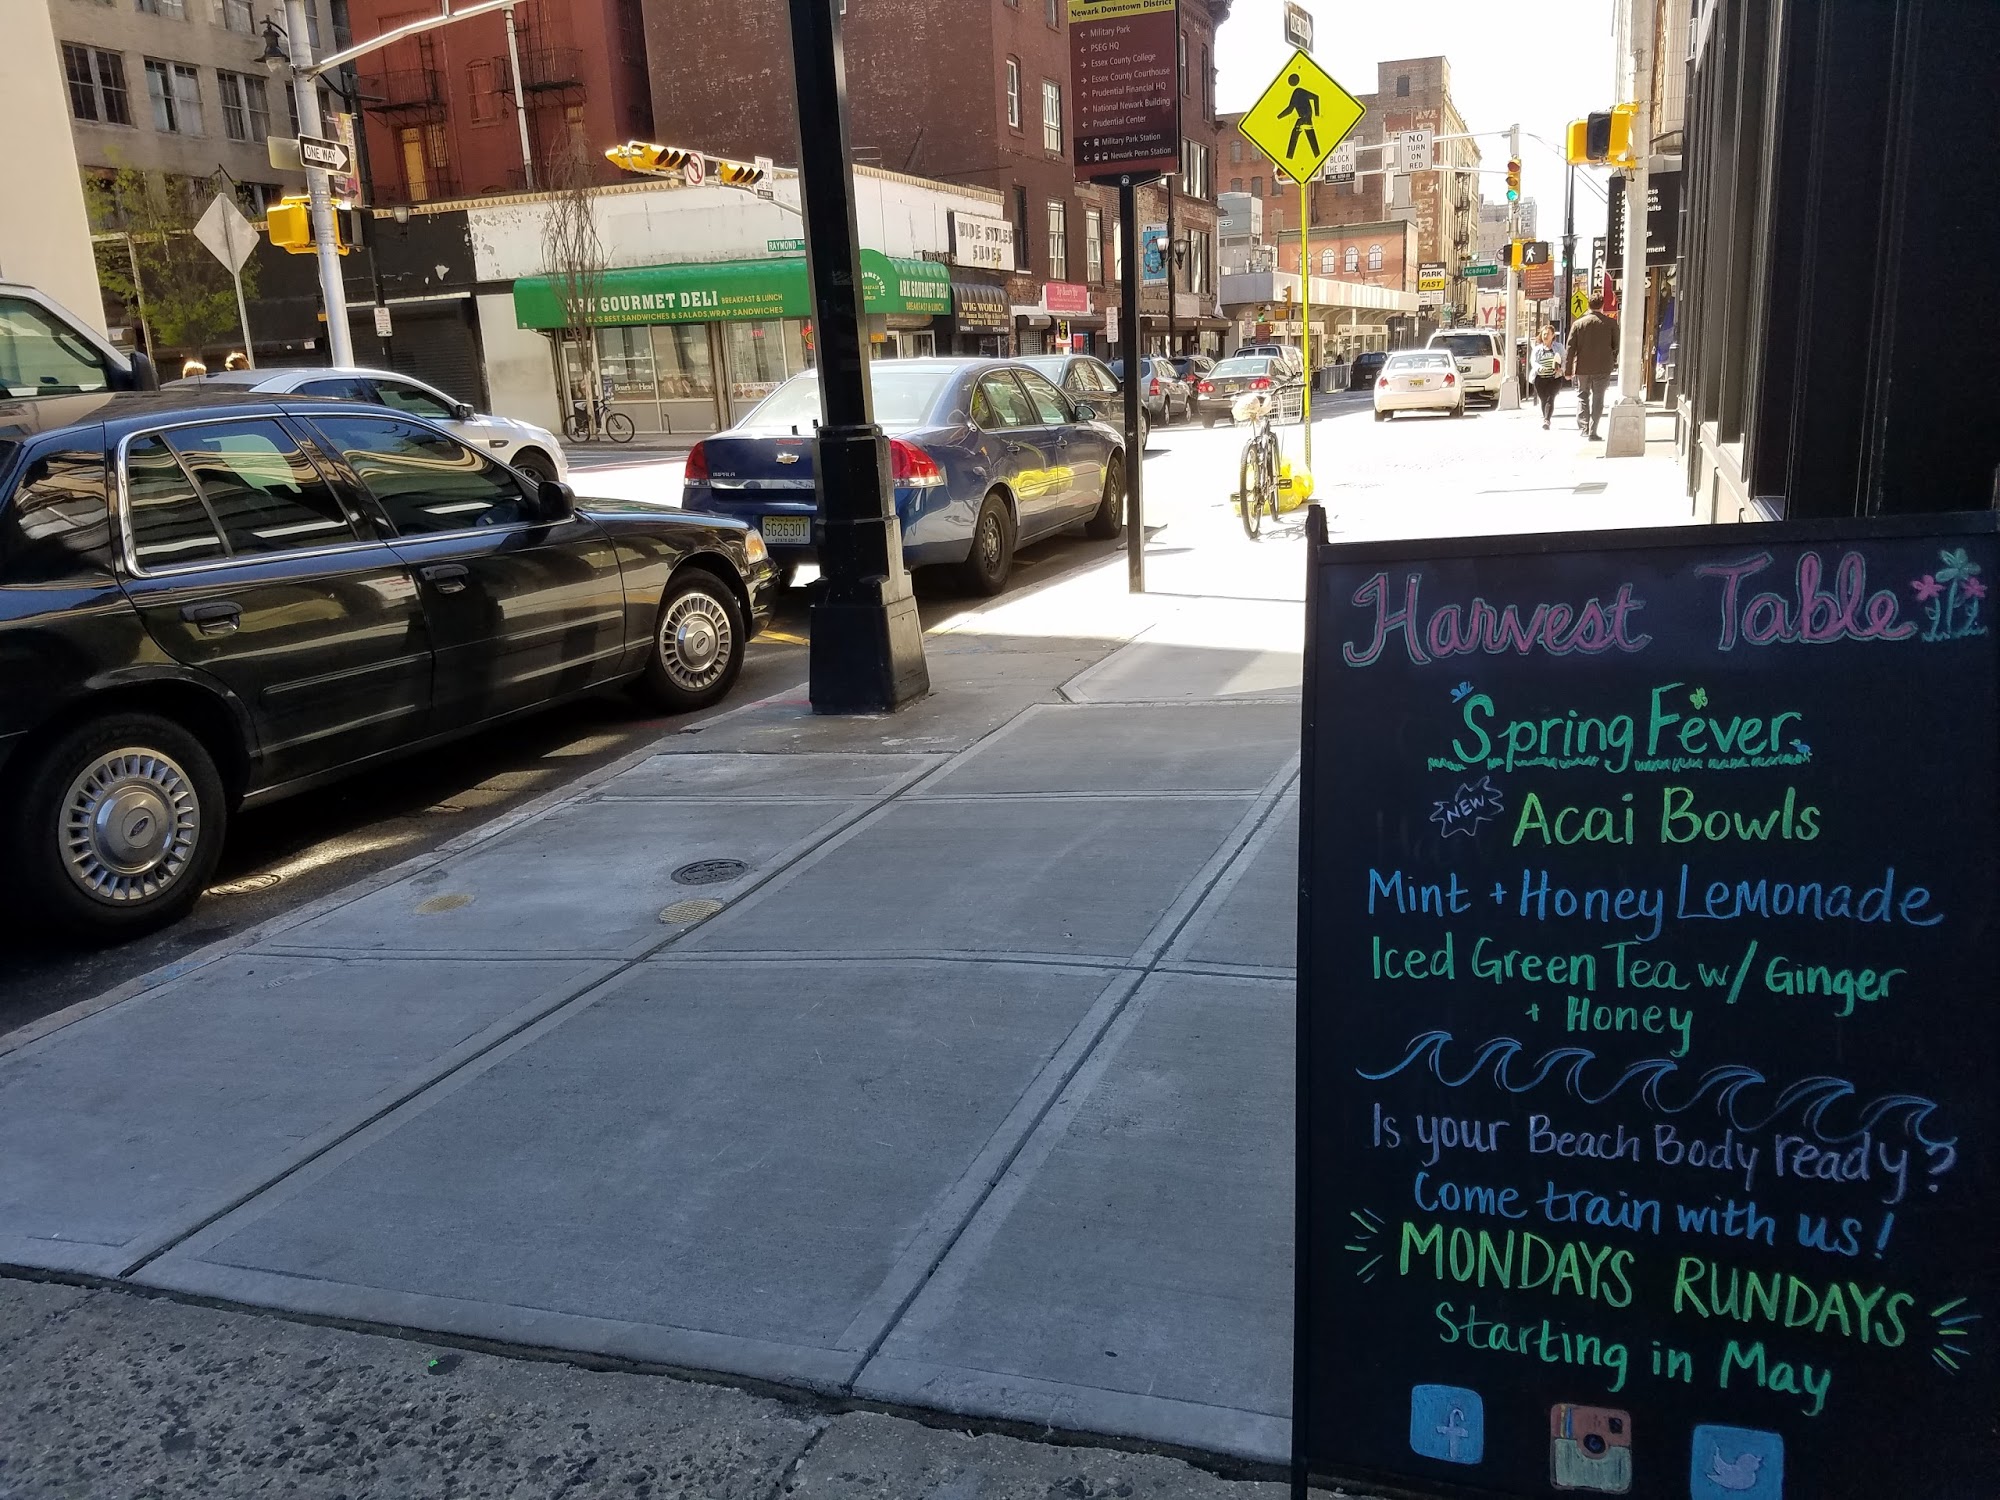 Newark Downtown District
← Military Park
← PSEG HQ
← Essex County College
← Essex County Courthouse
↑ Prudential Financial HQ
↑ National Newark Building
↑ Prudential Center
← Military Park Station
← Newark Penn Station
ONE WAY
NO TURN ON RED
DON'T BLOCK THE BOX
RAYMOND
WIDE STYLES
SHOES
ARK GOURMET DELI BREAKFAST & LUNCH
BEST SANDWICHES & SALADS, WRAP SANDWICHES
ARK GOURMET DELI
BREAKFAST & LUNCH
WIG WORLD
Boar's Head
Academy
PARK
FAST
IMPALA
SG26301
Harvest Table
Spring Fever
NEW Acai Bowls
Mint + Honey Lemonade
Iced Green Tea w/ Ginger
+ Honey
Is your Beach Body ready?
Come train with us!
MONDAYS RUNDAYS
Starting in May